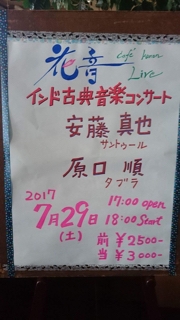 花音 café hanon Live
インド古典音楽コンサート
安藤 真也
サントゥール
原口 順
タブラ
2017 17:00 open
7月29日 18:00 Start
(土) 前 ¥2500-
当 ¥3000-